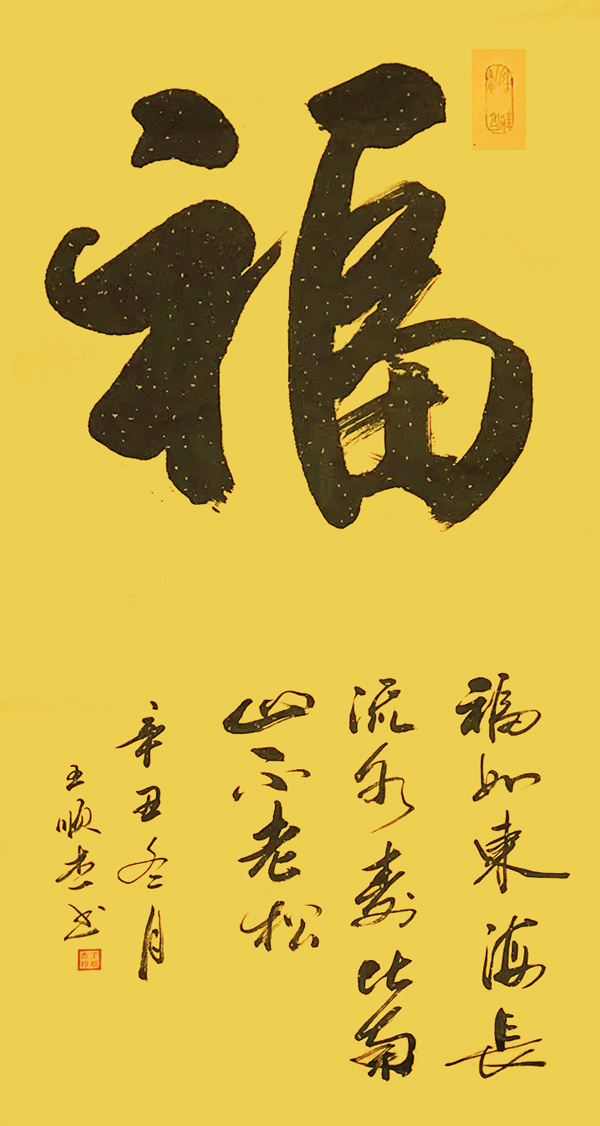 福
福如東海長
流水寿比南
山不老松
辛丑冬月
王顺杰书